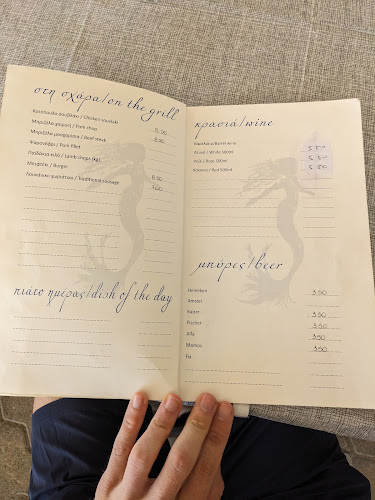 στη σχάρα/on the grill
Κοτόπουλο σουβλάκι / Chicken souvlaki
Μπριζόλα χοιρινή / Pork chop 8,50
Μπριζόλα μοσχαρίσια / Beef steak
Ψαρονέφρι / Pork fillet
Παϊδάκια κιλό / Lamb chops (kg)
Μπιφτέκι / Burger 8.50
Λουκάνικο χωριάτικο / Traditional sausage 7,00
πιάτο ημέρας/dish of the day
κρασιά/wine
Βαρελάτα/Barrel wine
Λευκό / White 500ml 5.50
Ροζέ / Rose 500ml 5.50
Κόκκινο / Red 500ml 5.50
μπύρες/beer
Heineken 3.50
Amstel
Kaiser 3.50
Fischer 3.50
Alfa 3.50
Mamos 3.50
Fix